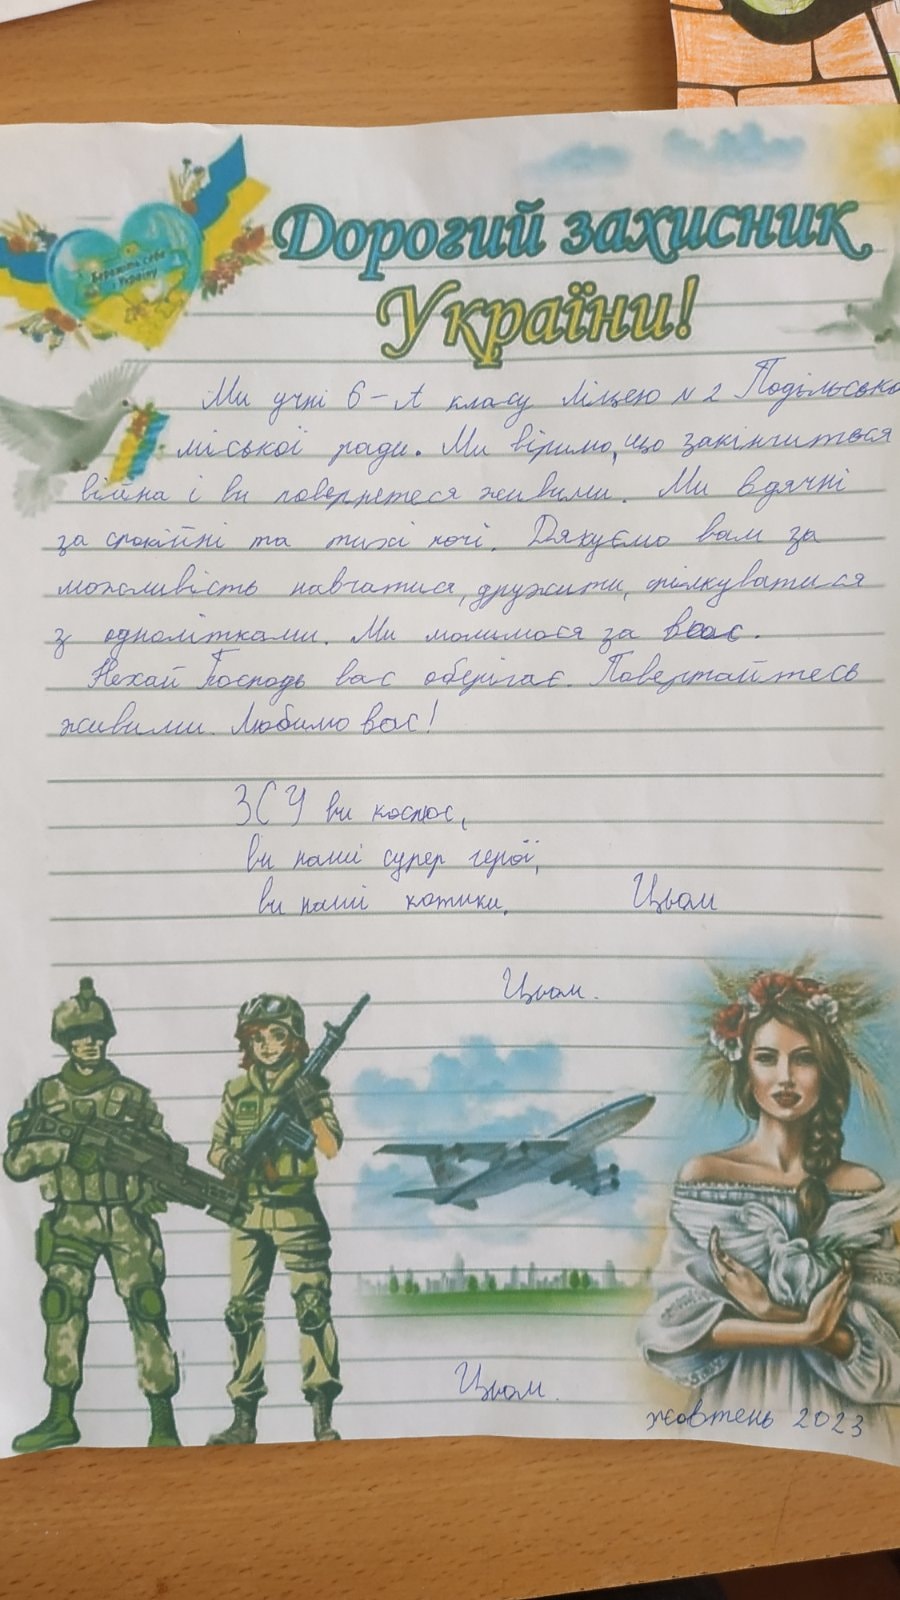 Бережіть себе
і Україну
Дорогий захисник
України!
Ми учні 6-А класу Ліцею №2 Подільсько
міської ради. Ми віримо, що закінчиться
війна і ви повернетеся живими. Ми вдячні
за спокійні та тихі ночі. Дякуємо вам за
можливість навчатися, дружити, спілкуватися
з однолітками. Ми молимося за вас.
Нехай Господь вас оберігає. Повертайтесь
живими. Любимо вас!
ЗСУ ви космос,
ви наші супер герої,
ви наші котики. Цьом
Цьом.
Цьом.
жовтень 2023